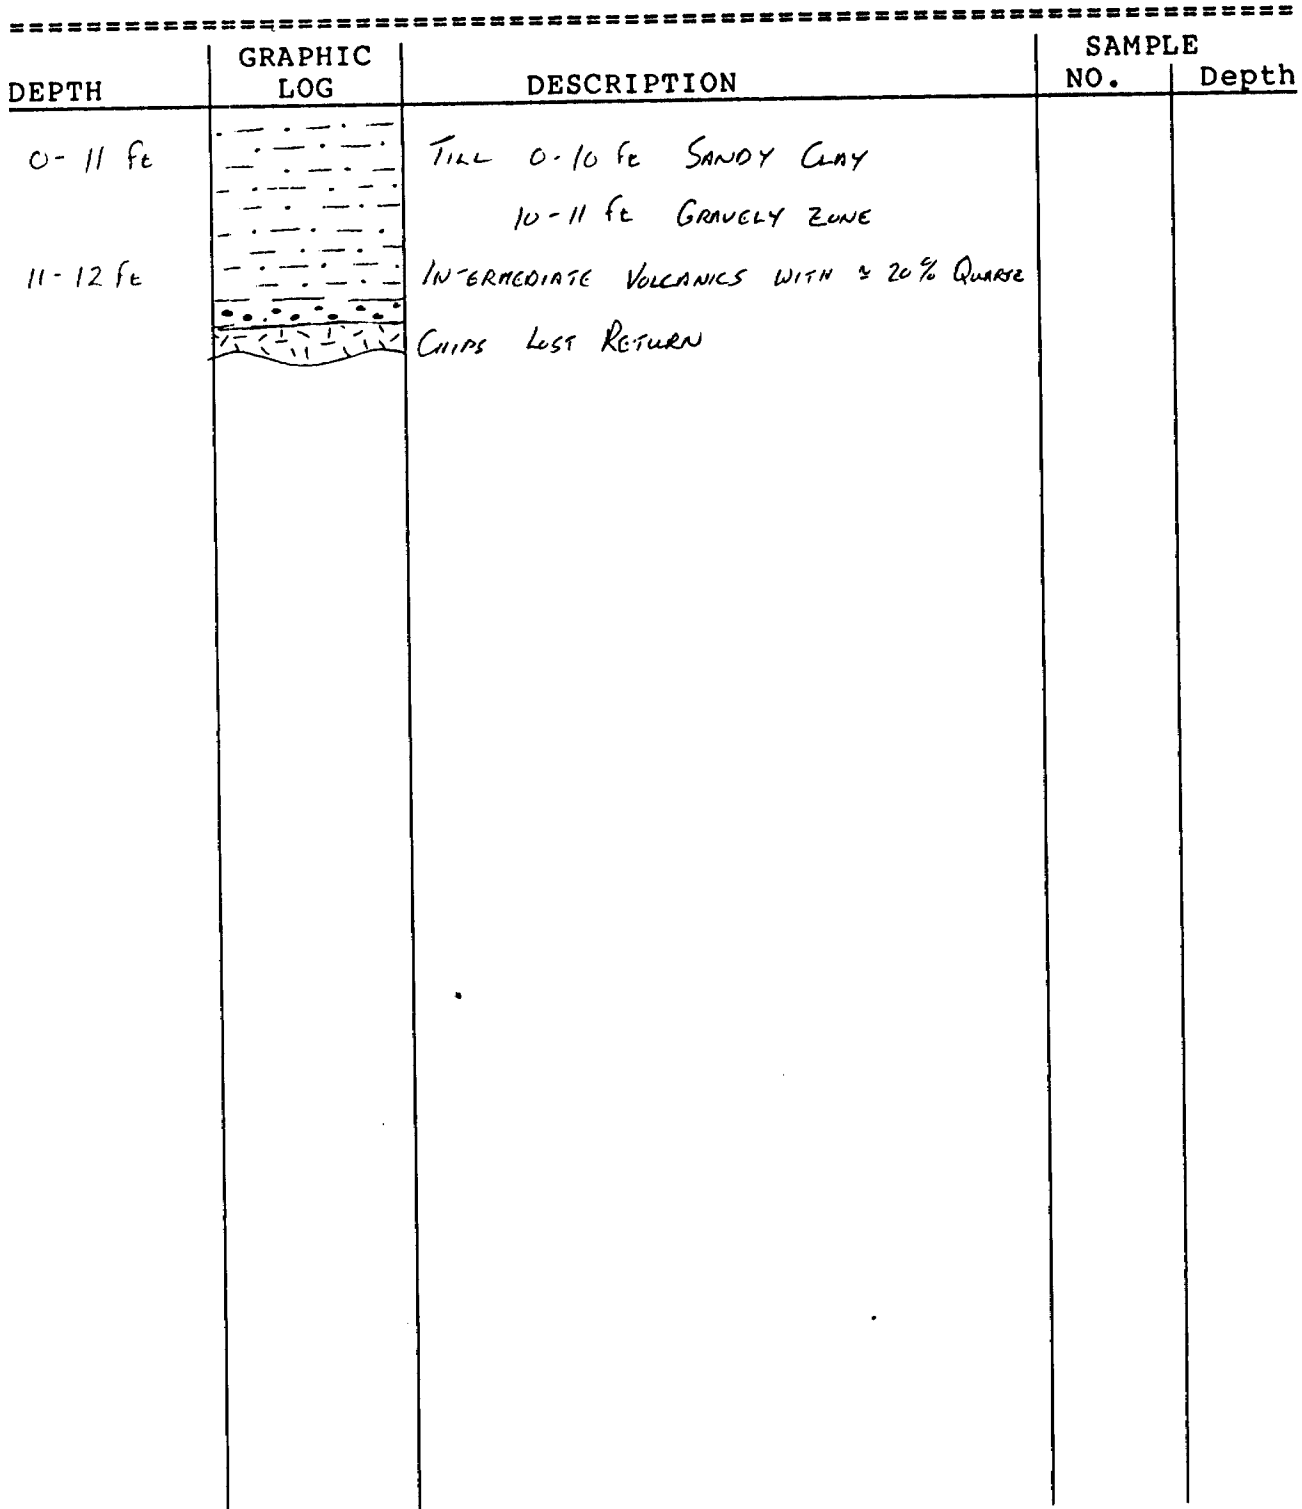 GRAPHIC SAMPLE
DEPTH LOG DESCRIPTION NO. Depth
0-11 ft TILL 0-10 ft SANDY CLAY
10-11 ft GRAVELY ZONE
11-12 ft INTERMEDIATE VOLCANICS WITH ≈ 20% QUARTZ
CHIPS LOST RETURN